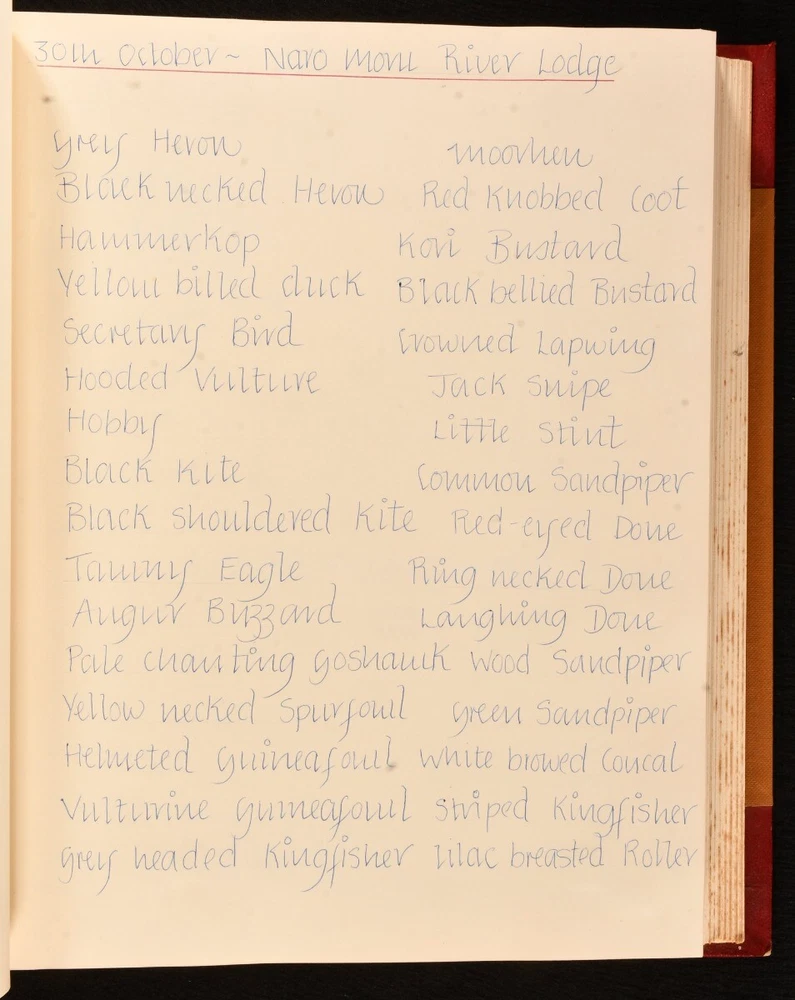 30th October ~ Naro Moru River Lodge
Grey Heron Moorhen
Black necked Heron Red Knobbed Coot
Hammerkop Kori Bustard
Yellow billed duck Black bellied Bustard
Secretary Bird Crowned Lapwing
Hooded Vulture Jack Snipe
Hobby Little Stint
Black Kite Common Sandpiper
Black Shouldered Kite Red-eyed Dove
Tawny Eagle Ring necked Dove
Augur Buzzard Laughing Dove
Pale chanting goshawk Wood Sandpiper
Yellow necked Spurfowl Green Sandpiper
Helmeted Guineafowl White browed Coucal
Vulturine Guineafowl Striped Kingfisher
Grey headed Kingfisher Lilac breasted Roller